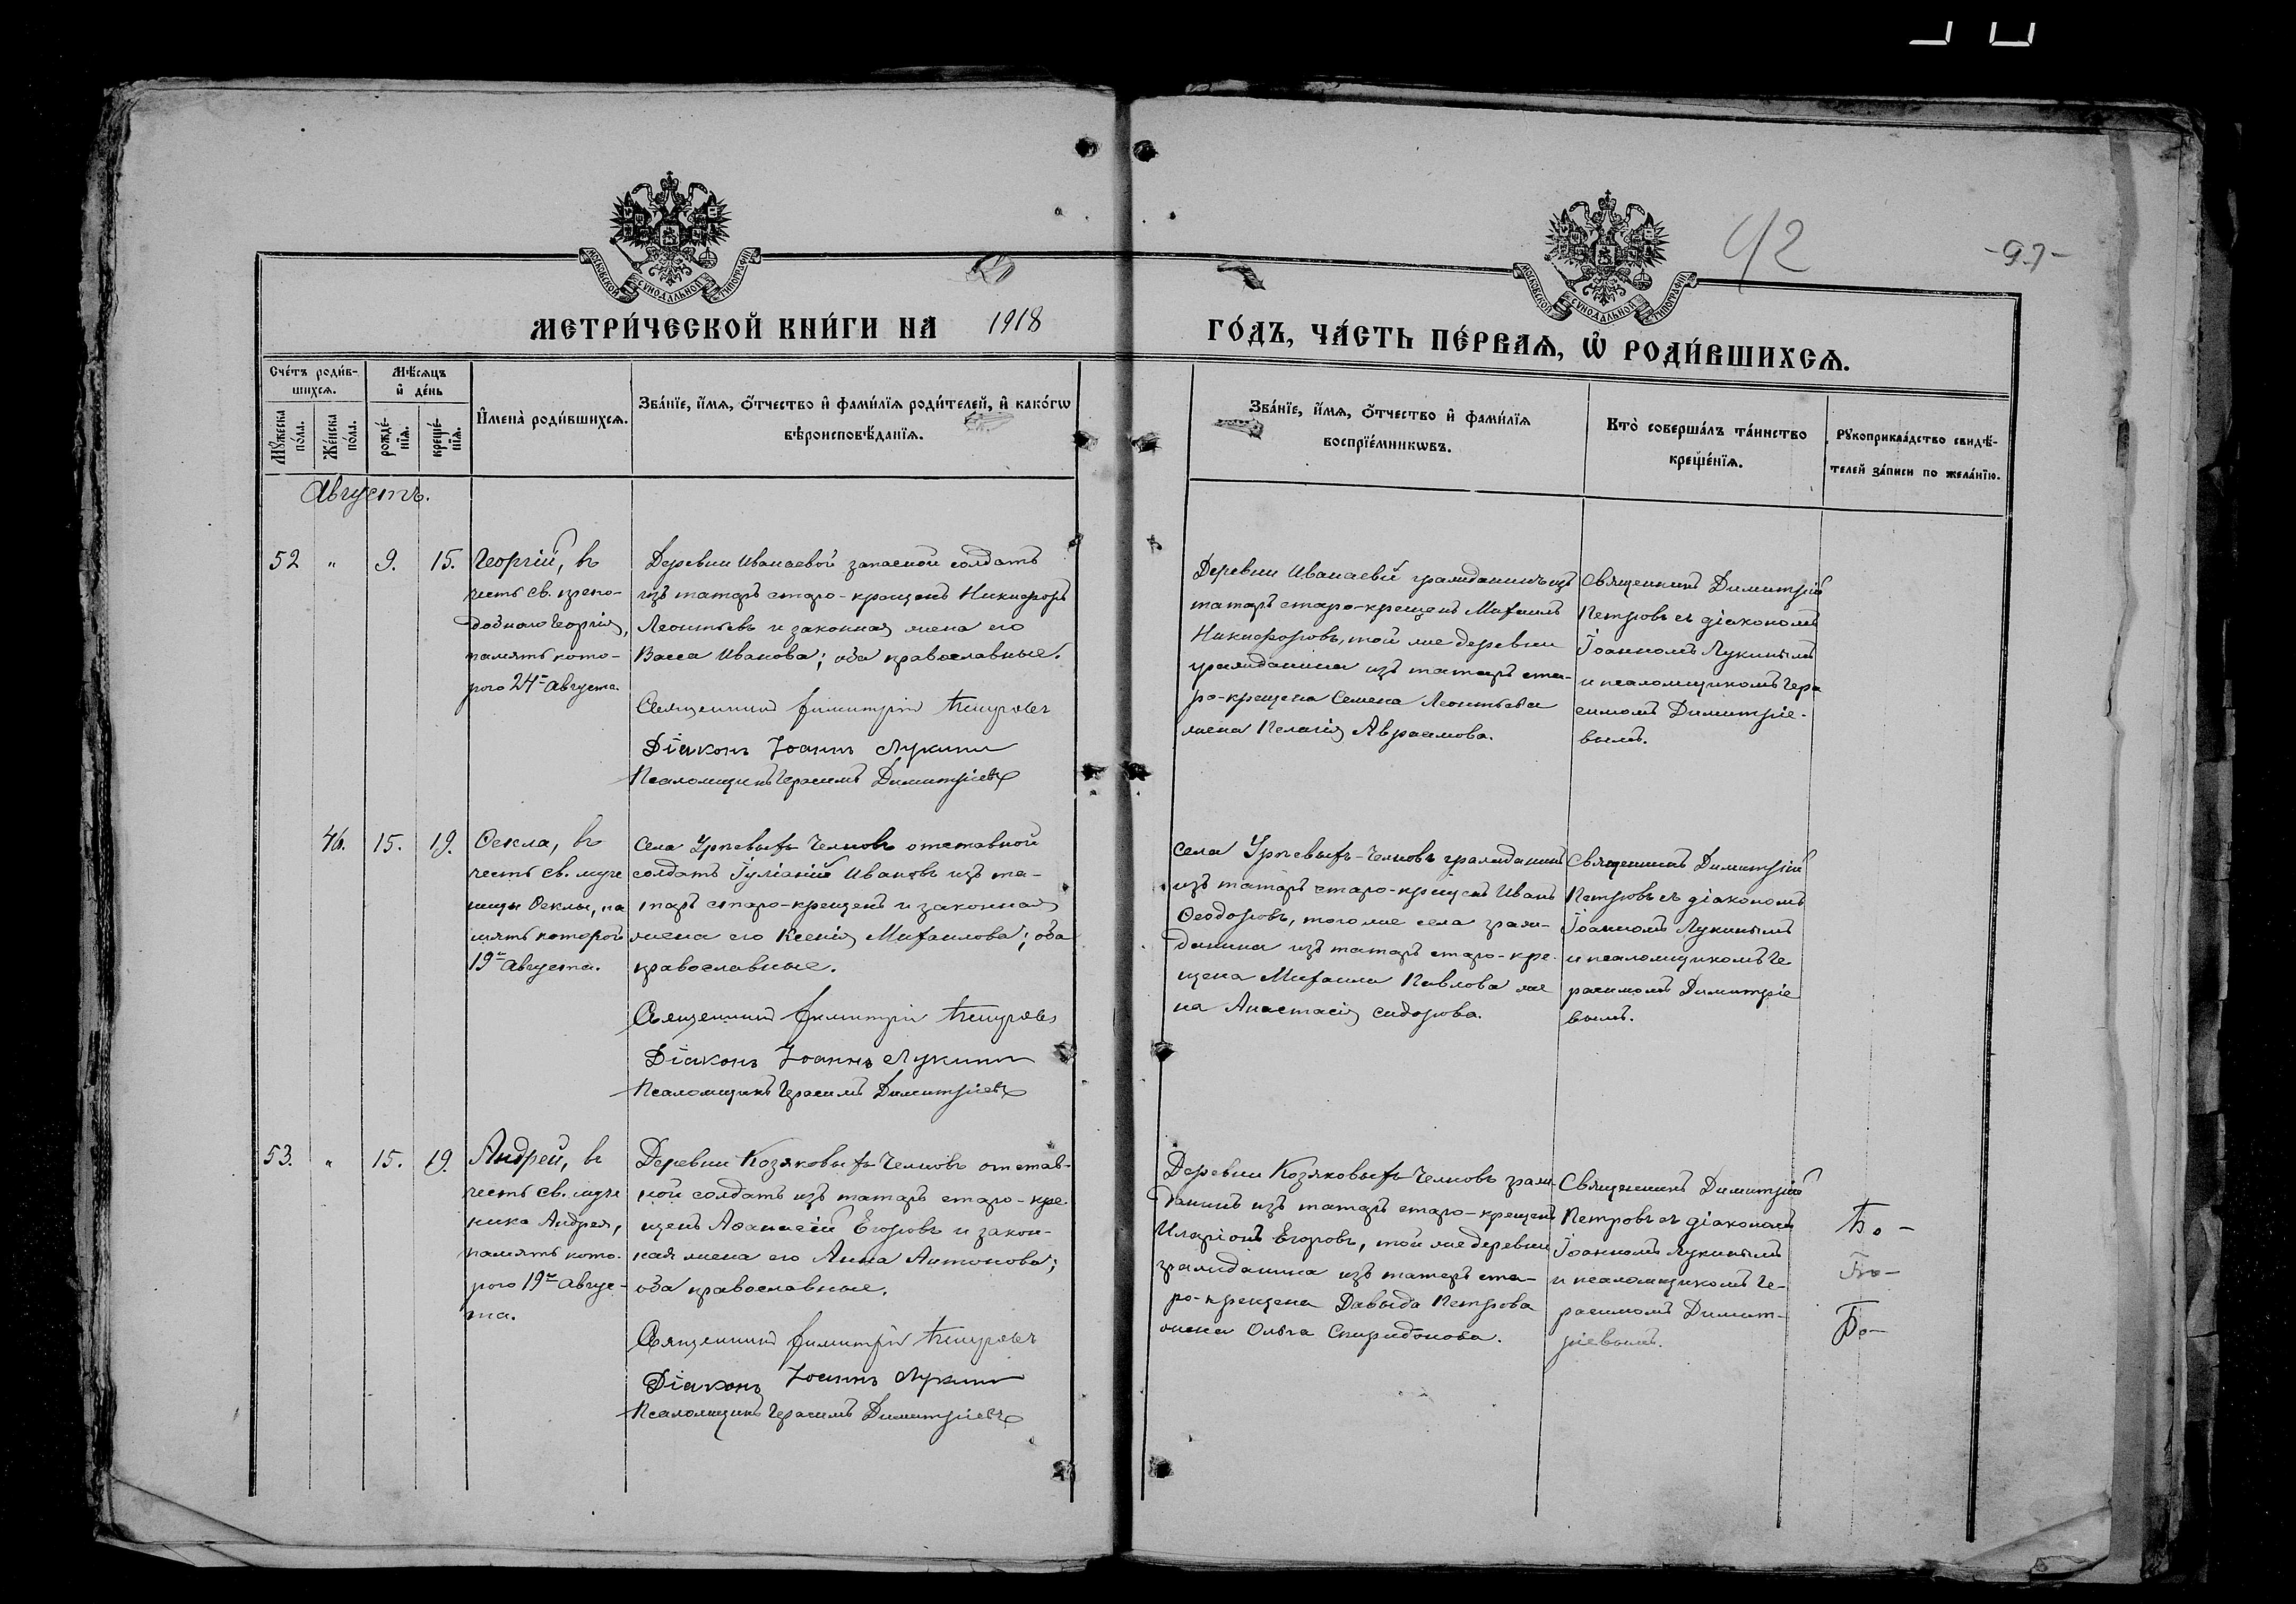 42
-97-
МОСКОВСКОЙ СУНОДАЛЬНОЙ ТИПОГРАФІИ
МОСКОВСКОЙ СУНОДАЛЬНОЙ ТИПОГРАФІИ
МЕТРИ́ЧЕСКОЙ КНИ́ГИ НА 1918
ГО́ДЪ, ЧА́СТЬ ПЕ́РВАѦ, Ѡ РОДИ́ВШИХСѦ.
Сче́тъ роди́в-
шихсѧ.
Мꙋжеска по́ла.
Же́нска по́ла.
Мѣ́сѧцъ
и де́нь
рожде́-
нїѧ.
креще́-
нїѧ.
И҆мена̀ роди́вшихсѧ.
Зва́нїе, и҆́мѧ, ѻ҆́тчество и҆ фами́лїѧ роди́телей, и҆ како́гѡ
вѣроисповѣ́данїѧ.
Зва́нїе, и҆́мѧ, ѻ҆́тчество и҆ фами́лїѧ
воспрїе́мникѡвъ.
Кто̀ соверша́лъ та́инство
креще́нїѧ.
Рꙋкоприкла́дство свидѣ́-
телей за́писи по жела́нїю.
Августъ.
52 " 9. 15.
Георгій, въ
честь св. препо-
добнаго Георгія,
память кото-
раго 24го Августа.
Деревни Иванаевой запасной солдатъ
изъ татаръ старо-крещенъ Никифоръ
Леонтьевъ и законная жена его
Васса Иванова; оба православные.
Священникъ Димитрій Петровъ
Діаконъ Іоаннъ Лукинъ
Псаломщикъ Герасимъ Димитріевъ
Деревни Иванаевой гражданинъ изъ
татаръ старо-крещенъ Михаилъ
Никифоровъ, той же деревни
гражданина изъ татаръ ста-
ро-крещена Семена Леонтьева
жена Пелагія Авраамова.
Священникъ Димитрій
Петровъ съ діакономъ
Іоанномъ Лукинымъ
и псаломщикомъ Гера
симомъ Димитріе-
вымъ.
46. 15. 19.
Ѳекла, въ
честь св. муче
ницы Ѳеклы, па
мять которой
19го Августа.
Села Урѣевыхъ-Челновъ отставной
солдатъ Іуліаній Ивановъ изъ та-
таръ старо-крещенъ и законная
жена его Ксенія Михаилова; оба
православные.
Священникъ Димитрій Петровъ
Діаконъ Іоаннъ Лукинъ
Псаломщикъ Герасимъ Димитріевъ
Села Урѣевыхъ-Челновъ гражданинъ
изъ татаръ старо-крещенъ Иванъ
Ѳеодоровъ, того же села граж-
данина изъ татаръ старо-кре-
щена Михаила Павлова же
на Анастасія Сидорова.
Священникъ Димитрій
Петровъ съ діакономъ
Іоанномъ Лукинымъ
и псаломщикомъ Ге
расимомъ Димитріе
вымъ.
53. " 15. 19.
Андрей, въ
честь св. муче
ника Андрея,
память кото-
раго 19го Авгус-
та.
Деревни Козяковыхъ-Челновъ отстав-
ной солдатъ изъ татаръ старо-кре
щенъ Аѳанасій Егоровъ и закон-
ная жена его Анна Антонова;
оба православные.
Священникъ Димитрій Петровъ
Діаконъ Іоаннъ Лукинъ
Псаломщикъ Герасимъ Димитріевъ
Деревни Козяковыхъ-Челновъ граж
данинъ изъ татаръ старо-крещенъ
Иларіонъ Егоровъ, той же деревни
гражданина изъ татаръ ста-
ро-крещена Давыда Петрова
жена Ольга Спиридонова.
Священникъ Димитрій
Петровъ съ діакономъ
Іоанномъ Лукинымъ
и псаломщикомъ Ге-
расимомъ Димит-
ріевымъ.